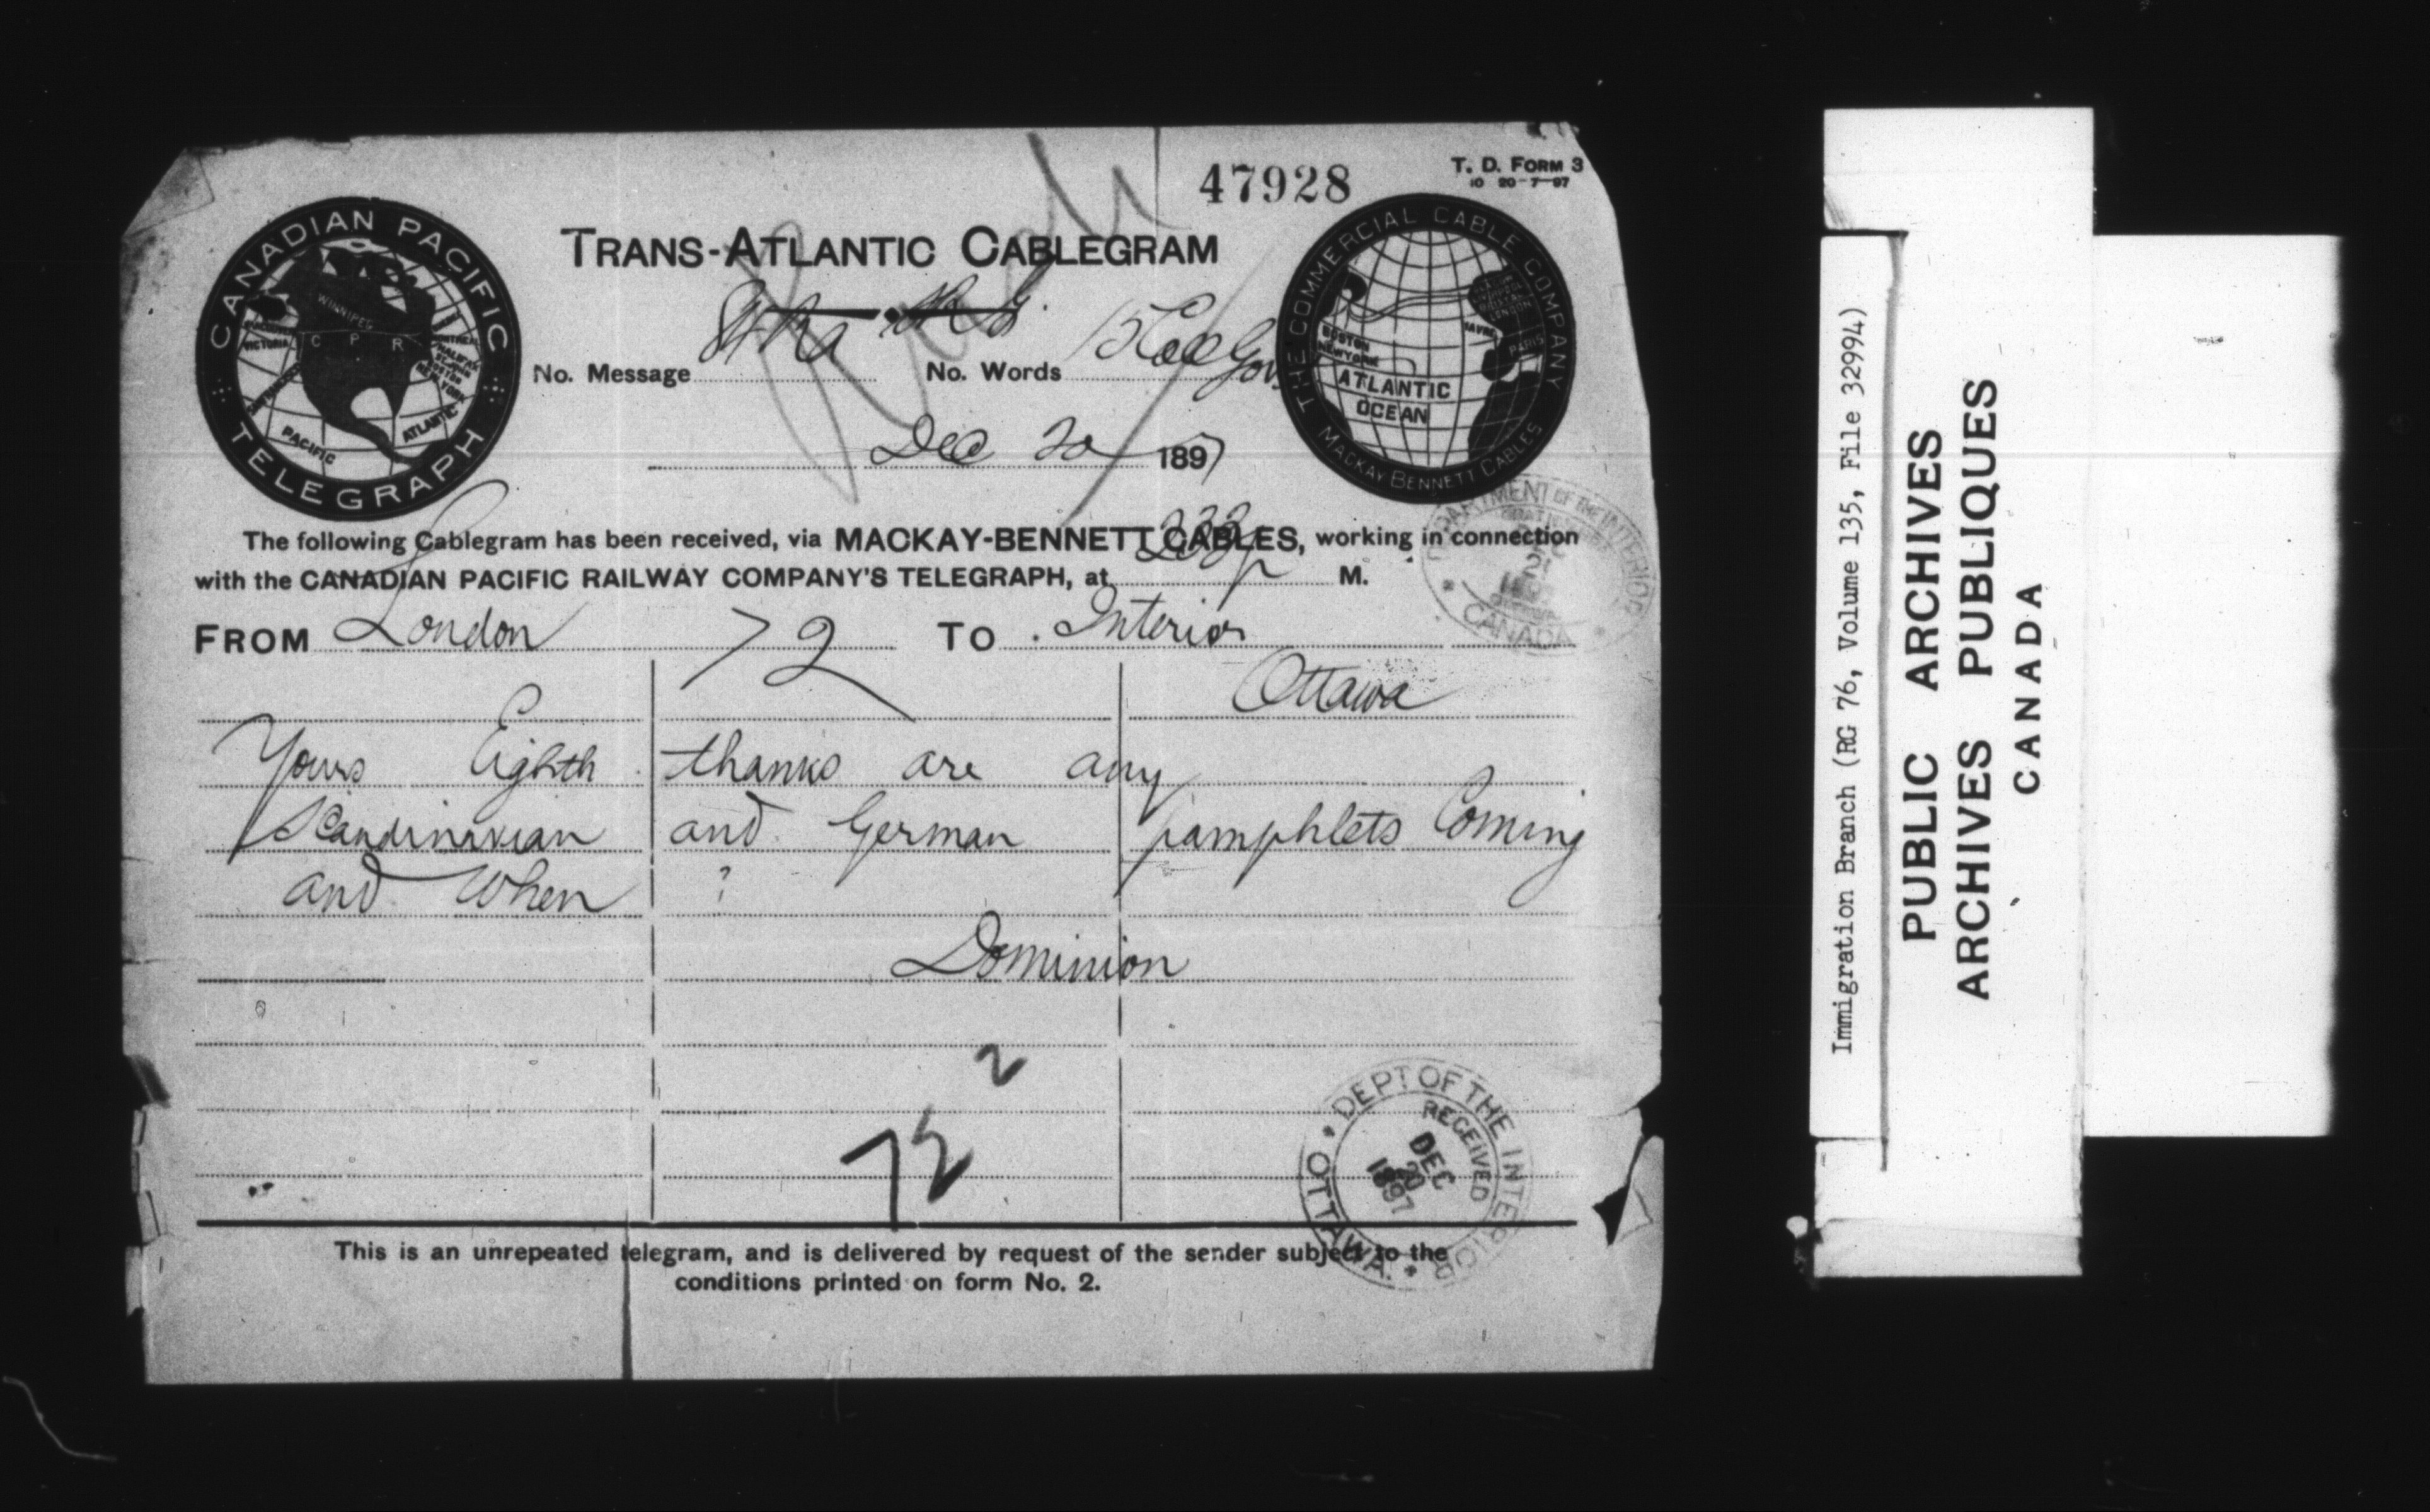 47928
T. D. FORM 3
10 20-7-97
CANADIAN PACIFIC
TELEGRAPH
WINNIPEG
VICTORIA
C P R
MONTREAL
HALIFAX
ST. JOHN
BOSTON
NEW YORK
PACIFIC
ATLANTIC
TRANS-ATLANTIC CABLEGRAM
THE COMMERCIAL CABLE COMPANY
MACKAY BENNETT CABLES
BOSTON
NEW YORK
LONDON
HAVRE
PARIS
ATLANTIC
OCEAN
No. Message No. Words 15
Dec 20 1897
The following Cablegram has been received, via MACKAY-BENNETT CABLES, working in connection
with the CANADIAN PACIFIC RAILWAY COMPANY'S TELEGRAPH, at 233p M.
DEPARTMENT OF THE INTERIOR
CANADA
FROM London 72 TO Interior
Ottawa
Yours Eighth thanks are any
Scandinavian and German pamphlets Coming
and When ?
Dominion
2
72
DEPT OF THE INTERIOR
RECEIVED
DEC
20
1897
OTTAWA.
This is an unrepeated telegram, and is delivered by request of the sender subject to the
conditions printed on form No. 2.
Immigration Branch (RG 76, Volume 135, File 32994)
PUBLIC ARCHIVES
ARCHIVES PUBLIQUES
CANADA